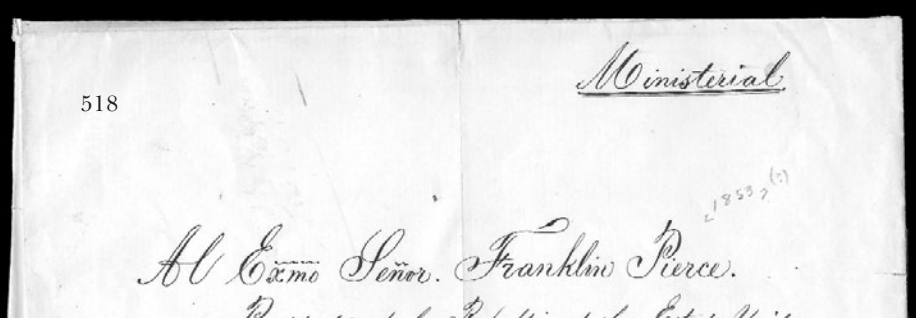 Ministerial
518
[1853](?)
Al Exmo Señor. Franklin Pierce.